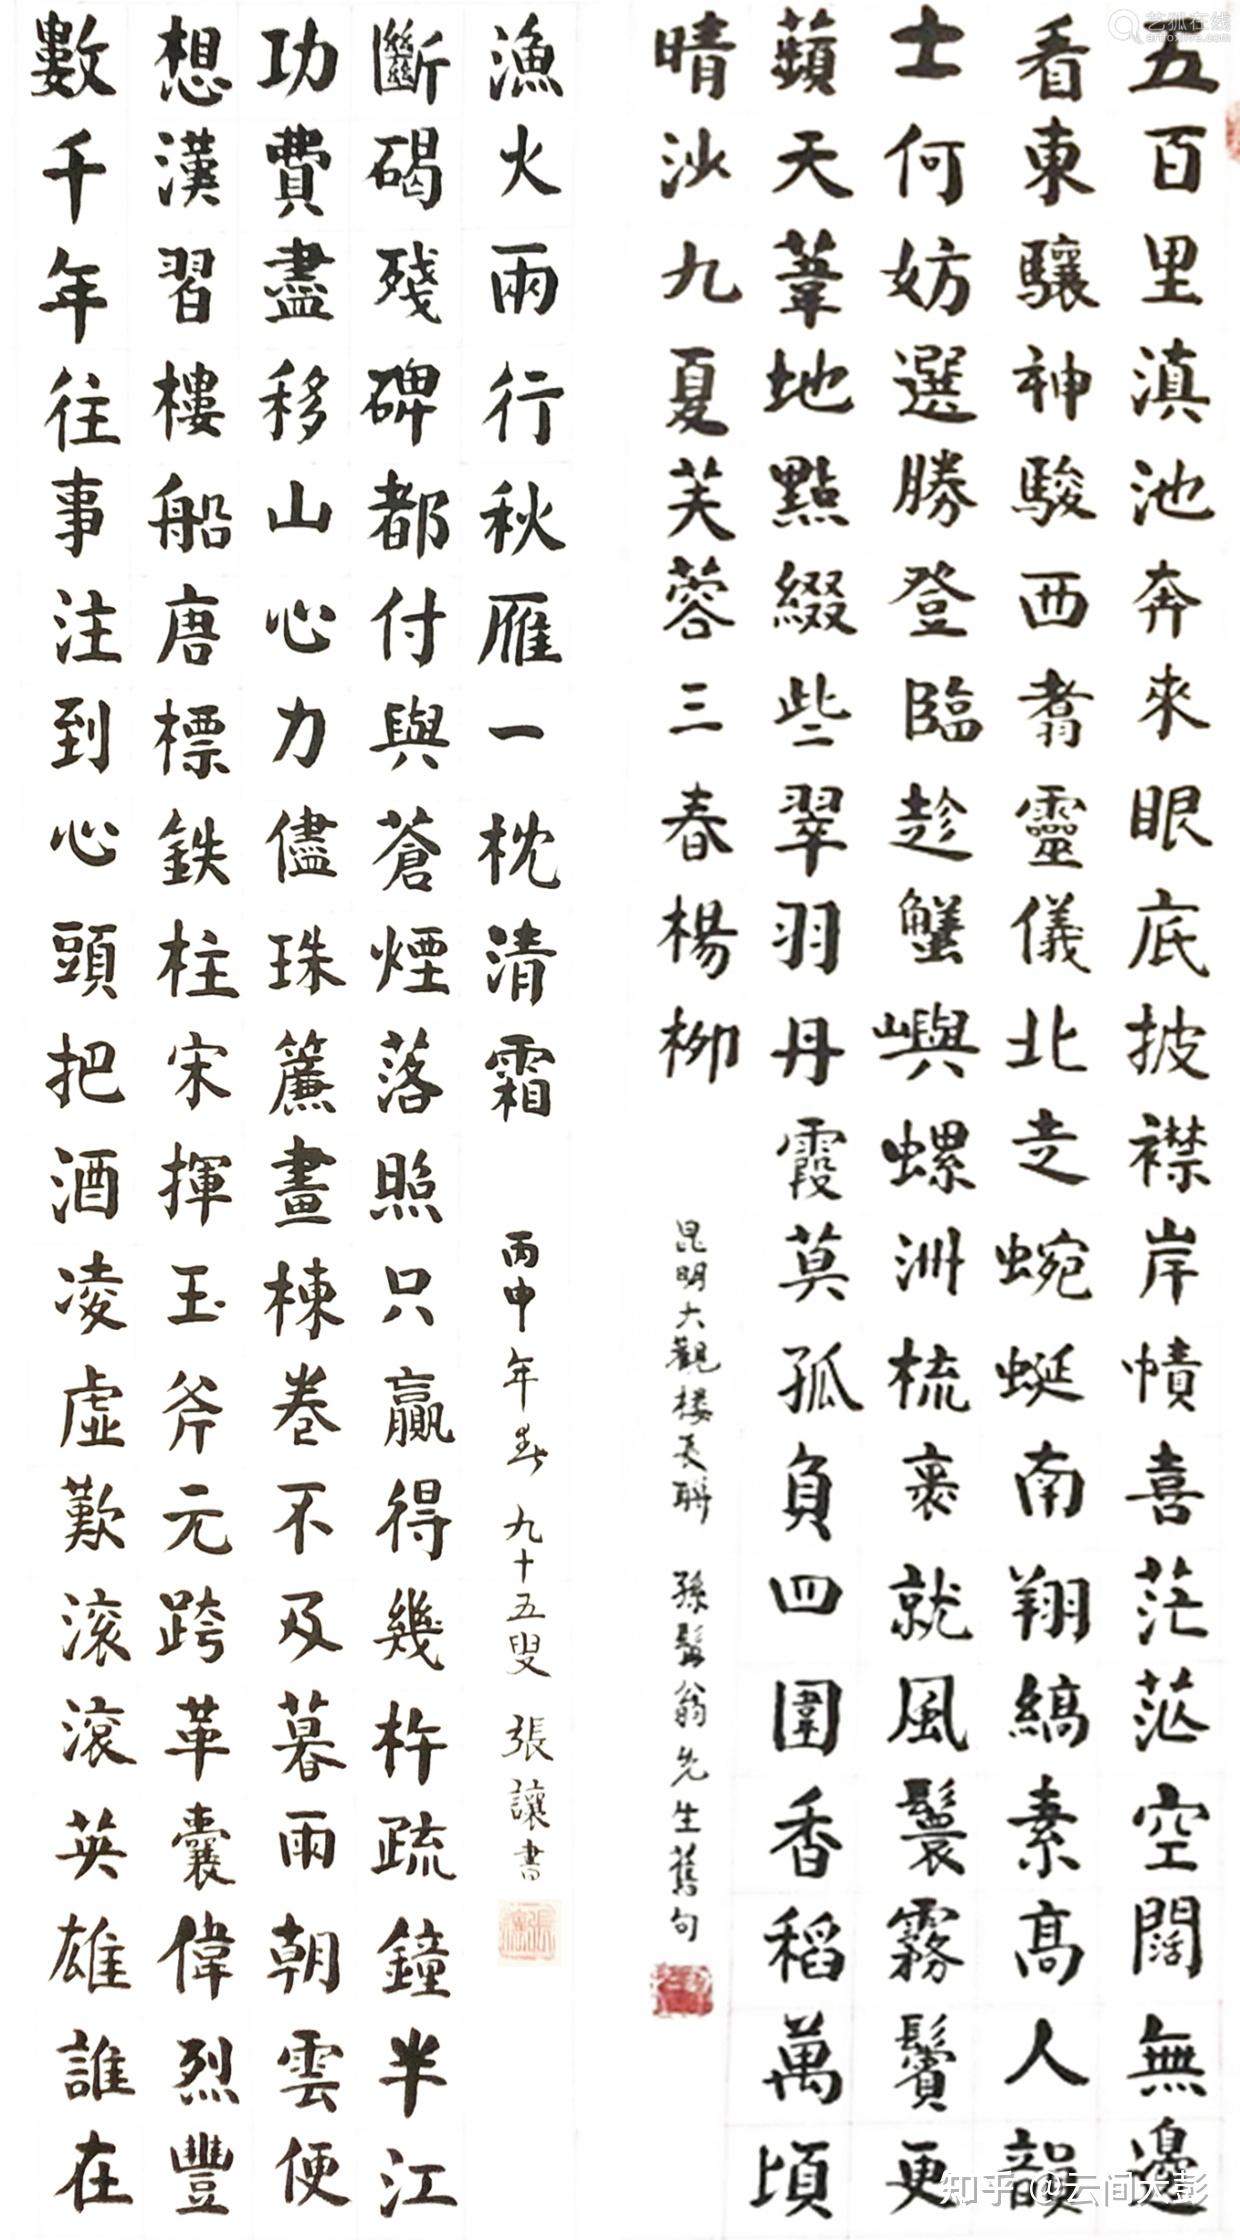 五百里滇池奔來眼底披襟岸幘喜茫茫空闊無邊
看東驤神駿西翥靈儀北走蜿蜒南翔縞素高人韻
士何妨選勝登臨趁蟹嶼螺洲梳裹就風鬟霧鬢更
蘋天葦地點綴些翠羽丹霞莫孤負四圍香稻萬頃
晴沙九夏芙蓉三春楊柳
昆明大觀楼長聯 孫髯翁先生舊句
數千年往事注到心頭把酒凌虛歎滾滾英雄誰在
想漢習樓船唐標鉄柱宋揮玉斧元跨革囊偉烈豐
功費盡移山心力儘珠簾畫棟卷不及暮雨朝雲便
斷碣殘碑都付與蒼煙落照只贏得幾杵疏鐘半江
漁火兩行秋雁一枕清霜
丙申年春 九十五叟 張讓書
艺狐在线
artfoxlive.com
知乎 @云间大彭